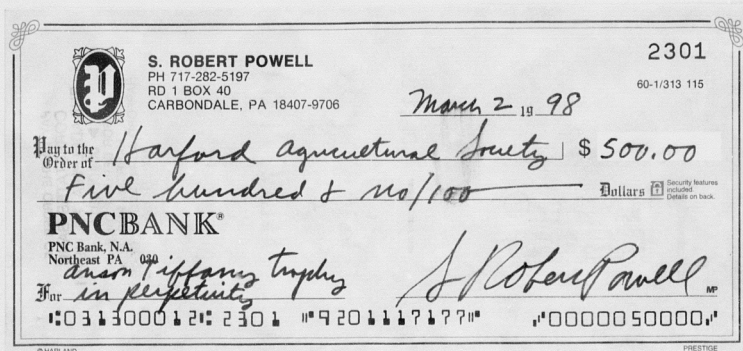 S. ROBERT POWELL
PH 717-282-5197
RD 1 BOX 40
CARBONDALE, PA 18407-9706
2301
60-1/313 115
March 2 19 98
Pay to the Order of Harford Agricultural Society $ 500.00
Five hundred & no/100 Dollars
Security features included. Details on back.
PNCBANK®
PNC Bank, N.A.
Northeast PA 030
For Anson Tiffany trophy
in perpetuity
S Robert Powell
MP
⑆031300012⑆ 2301 ⑈9201117177⑈ ⑇0000050000⑇
© HARLAND
PRESTIGE